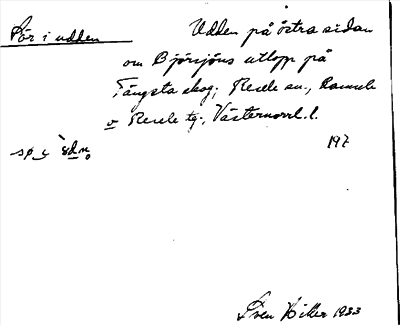 Pör i udden
Udden på östra sidan
om Björsjöns utlopp på
Tängsta skog; Resele sn., Ramsele
o Resele tg., Västernorrl. l.
197
Sven Hiller 1933